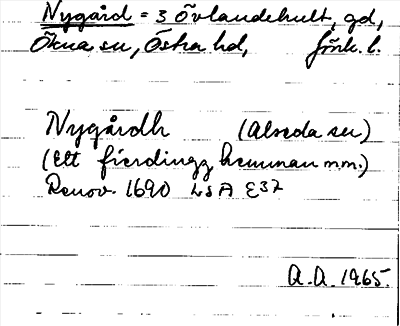 Nygård = 3 Övlandehult, gd,
Ökna sn, Östra hd, Jönk. l.
Nygårdh (Alseda sn)
(Ett fierdingz hemman mm.)
Renov. 1690 LsA E37
A.A. 1965.